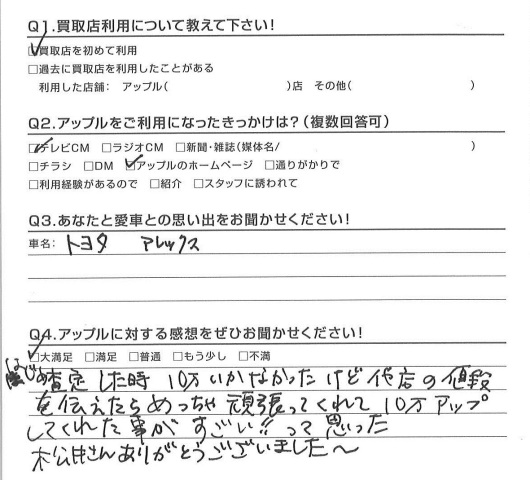 Q1.買取店利用について教えて下さい!
□買取店を初めて利用
□過去に買取店を利用したことがある
利用した店舗: アップル( )店 その他( )
Q2.アップルをご利用になったきっかけは?(複数回答可)
□テレビCM □ラジオCM □新聞・雑誌(媒体名/ )
□チラシ □DM □アップルのホームページ □通りがかりで
□利用経験があるので □紹介 □スタッフに誘われて
Q3.あなたと愛車との思い出をお聞かせください!
車名: トヨタ アレックス
Q4.アップルに対する感想をぜひお聞かせください!
□大満足 □満足 □普通 □もう少し □不満
はじめ査定した時 10万いかなかったけど他店の値段
を伝えたらめっちゃ頑張ってくれて10万アップ
してくれた事がすごい!!って思った
さんありがとうございました〜